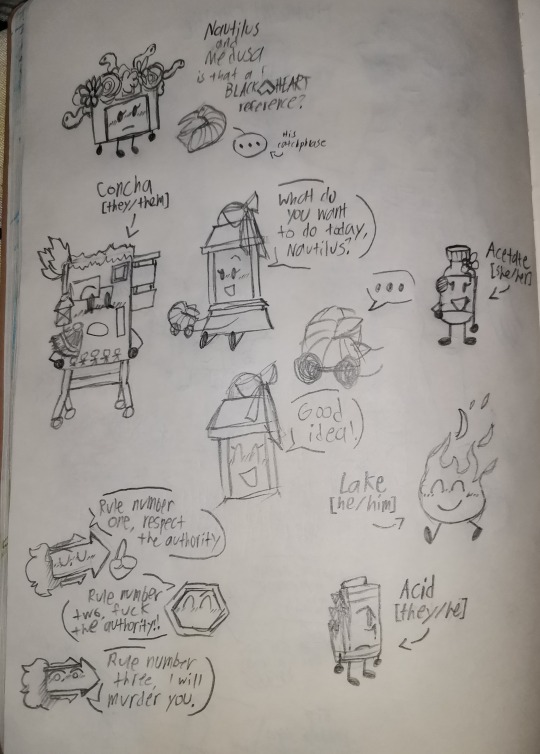 Nautilus
and
Medusa
is that a
BLACK HEART
reference?
...
His
catchphrase
Concha
[they/them]
What do
you want
to do today,
Nautilus?
Acetate
[she/her]
...
Good
idea!
Lake
[he/him]
Rule number
one, respect
the authority
Rule number
two, fuck
the authority!!
Acid
[they/he]
Rule number
three, I will
murder you.